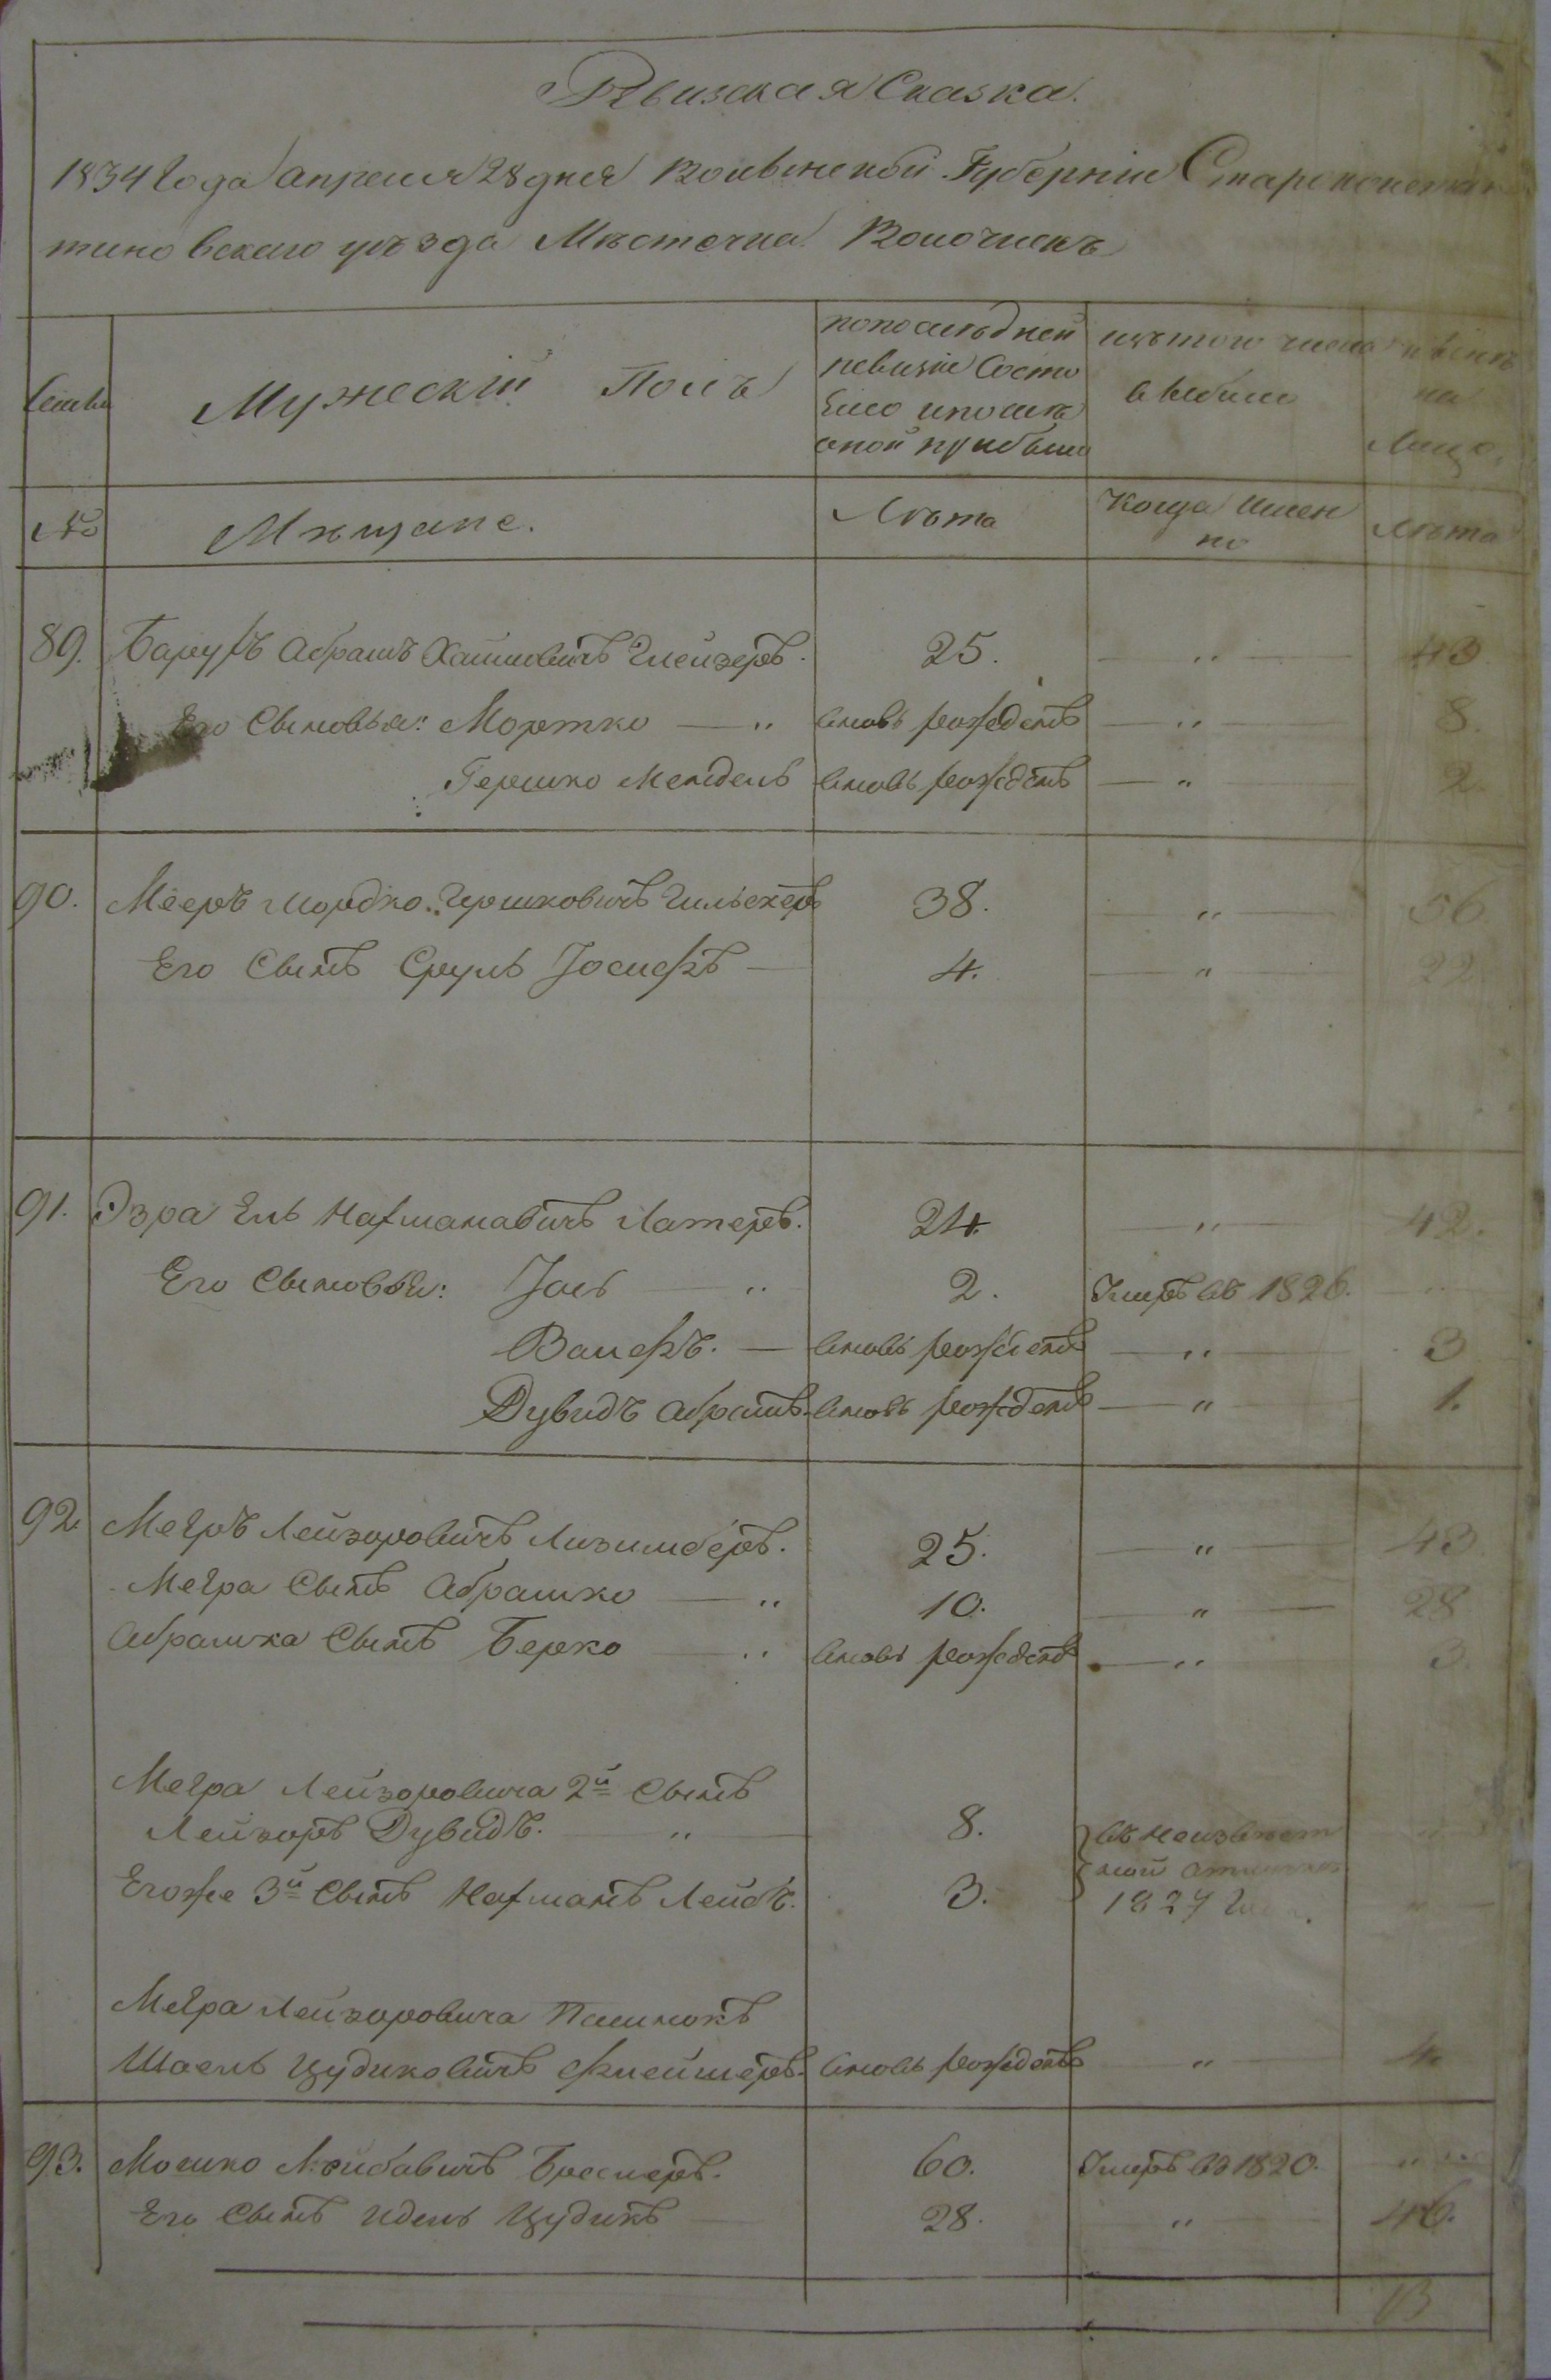 Ревизская Сказка.
1834 Года апреля 28 дня Волынской Губерніи Староконстан
тиновскаго уѣзда Мѣстечка Волочискъ
Семьи
Мужескій Полъ
попослѣдней
ревизіи Состо
яло ипослѣ
оной прибыло
изъ того числа
выбыло
нынѣ
на
Лицо.
№
Мѣщане.
Лѣта
Когда Имен
но
Лѣта
89. Барухъ Абрамъ Хаимовичъ Глейзеръ. 25. — " — 43.
Его Сыновья: Мортко — " вновь рожденъ — " — 8.
Гершко Мендель вновь рожденъ — " — 2.
90. Мееръ Мордко Гершковичъ 38. — " — 56.
Его Сынъ Сруль Іосифъ — 4. — " — 22
91. Эзра Ель Нахмановичъ Латеръ. 24. — " — 42.
Его Сыновья: Іось — " 2. Умеръ въ 1826. "
Волфъ. — вновь рожденъ — " — 3
Дувидъ Абрамъ. вновь рожденъ — " — 1.
92. Мееръ Лейзоровичъ 25. — " — 43
Меера Сынъ Абрашко — " 10. — " — 28
Абрашка Сынъ Берко — " вновь рожденъ — " — 3.
Меера Лейзоровича 2й Сынъ
Лейзоръ Дувидъ. — " — 8. въ неизвѣст "
ной отлучкѣ
Егоже 3й Сынъ Нахманъ Лейбъ. 3. 1827 "
Меера Лейзоровича Племянникъ
Шаель Цудиковичъ Флейшеръ. вновь рожденъ " — 4.
93. Мошко Лейбовичъ 60. Умеръ въ 1820. "
Его Сынъ Идель Цудикъ — 28. " 46.